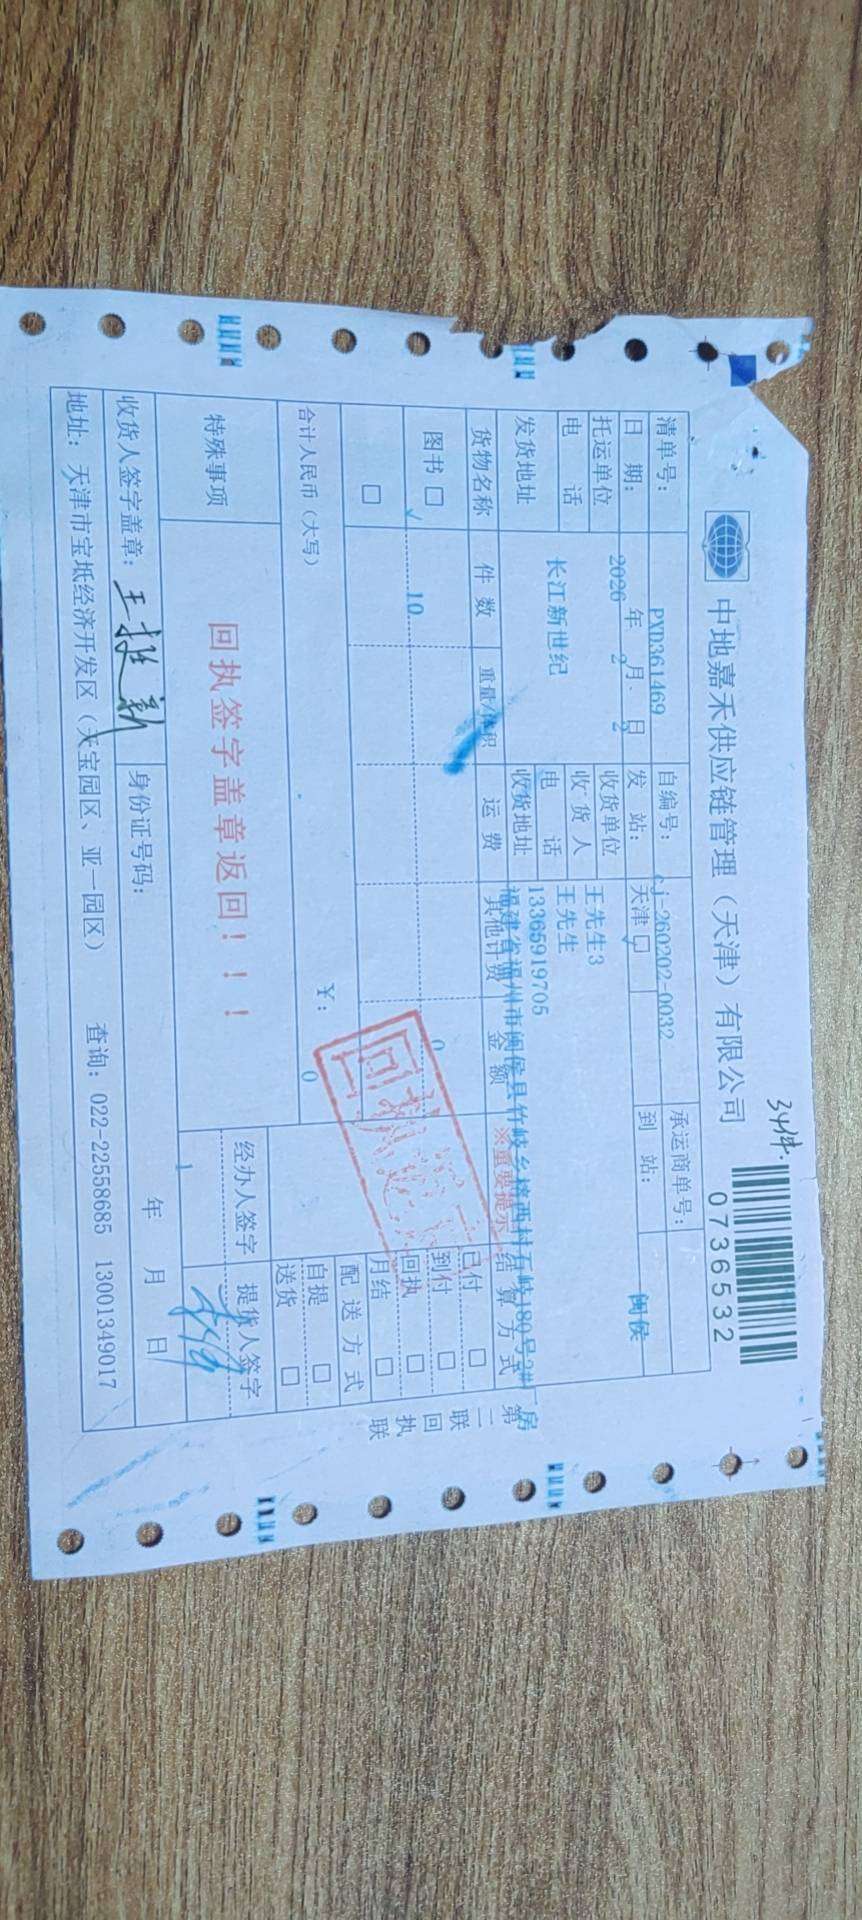 中地嘉禾供应链管理（天津）有限公司
0736532
清单号： PYD361469 自编号： cj-260202-0032 承运商单号：
日 期： 2026 年 2 月 2 日 发 站： 天津 到 站： 闽侯
托运单位 长江新世纪 收货单位 王先生3
收 货 人 王先生
电 话 电 话 13365919705
发货地址 收货地址 福建省福州市闽侯县竹岐乡榕西村石岐180号2#厂房
货物名称 件 数 重量/体积 运 费 其他计费 金 额 ※重要提示 结 算 方 式
图书 10 0 已付
到付
回执
月结
合计人民币（大写） ￥： 0 配 送 方 式
自提
送货
特殊事项 回执签字盖章返回！！！ 经办人签字 提货人签字
1
收货人签字盖章： 身份证号码： 年 月 日
地址：天津市宝坻经济开发区（天宝园区、亚一园区） 查询：022-22558685 13001349017
第二联 回执联